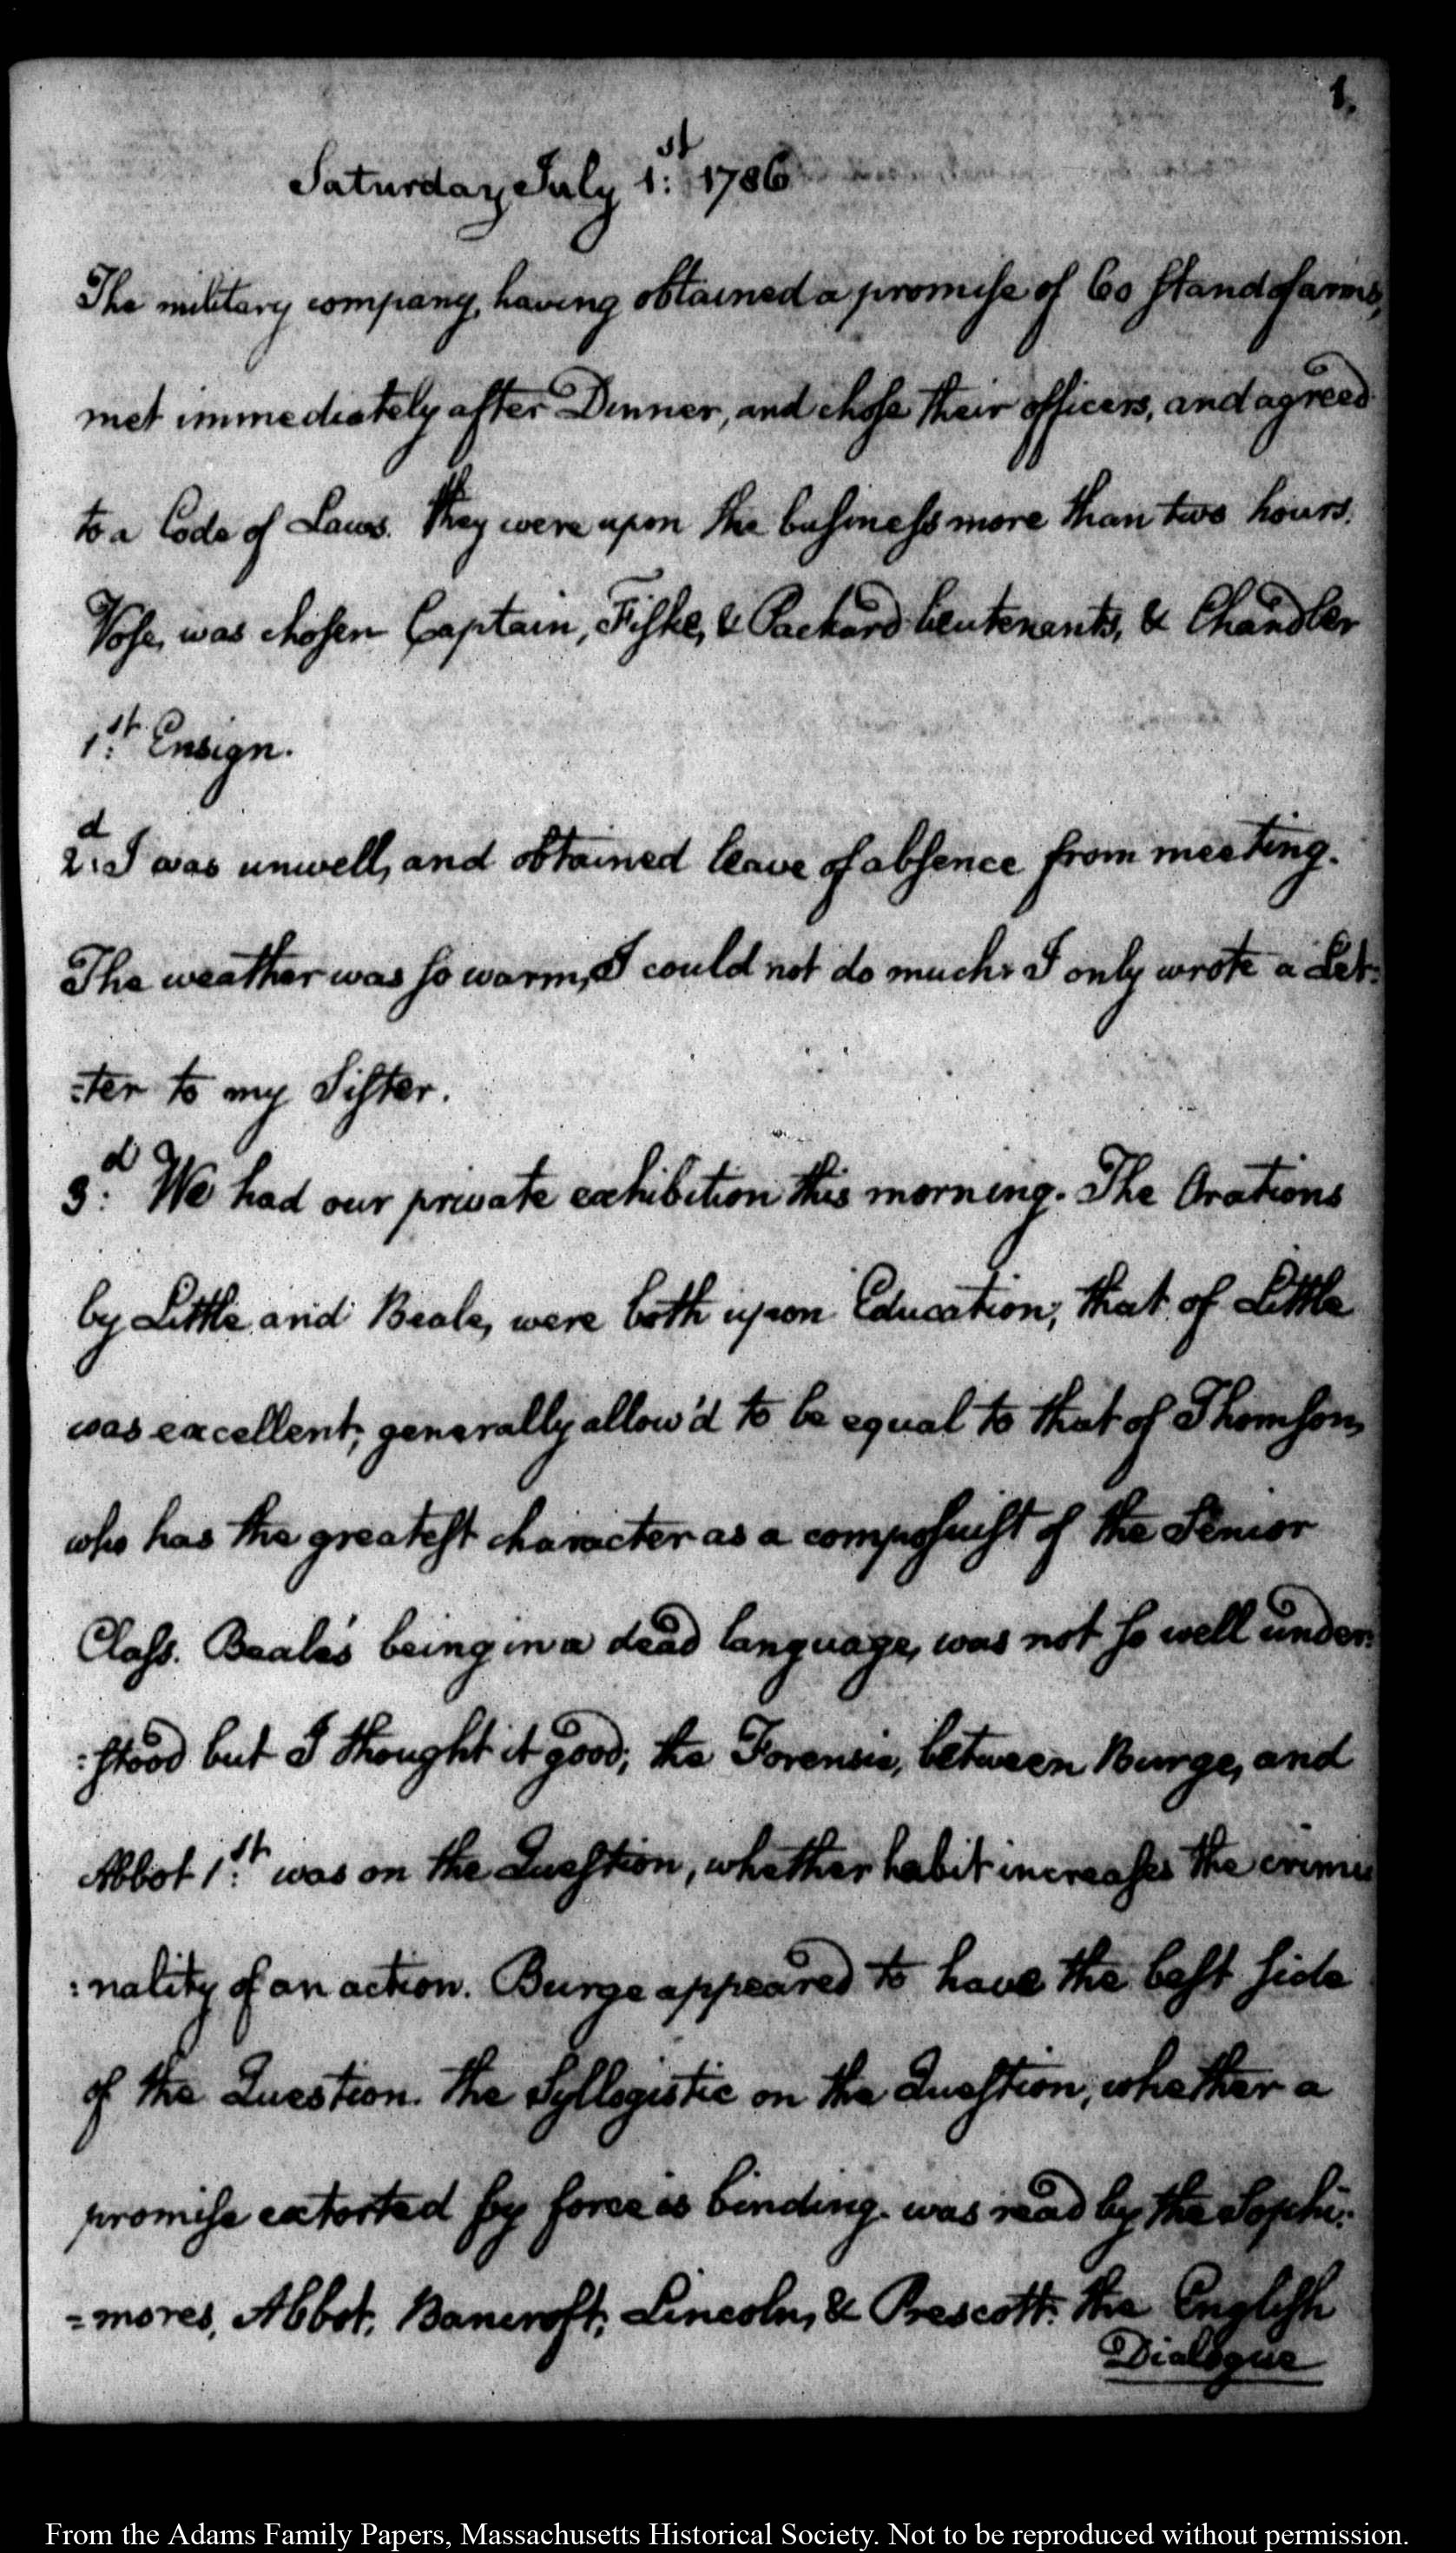 1.
Saturday July 1.st 1786
The military company, having obtained a promise of 60 stand of arms,
met immediately after Dinner, and chose their officers, and agreed
to a Code of Laws. They were upon the business more than two hours.
Vose, was chosen Captain, Fiske, & Packard lieutenants, & Chandler
1.st Ensign.
2.d I was unwell, and obtained leave of absence from meeting.
The weather was so warm, I could not do much: I only wrote a Let-
:ter to my Sister.
3.d We had our private exhibition this morning. The Orations
by Little and Beale, were both upon Education; that of Little
was excellent; generally allow'd to be equal to that of Thomson,
who has the greatest character as a composuist of the Senior
Class. Beale's being in a dead language, was not so well under:
:stood but I thought it good; the Forensic, between Burge, and
Abbot 1.st was on the Question, whether habit increases the crimi
:nality of an action. Burge appeared to have the best side
of the Question. The Syllogistic on the Question, whether a
promise extorted by force is binding. was read by the Sophi:
=mores, Abbot, Bancroft, Lincoln, & Prescott. the English
Dialogue
From the Adams Family Papers, Massachusetts Historical Society. Not to be reproduced without permission.